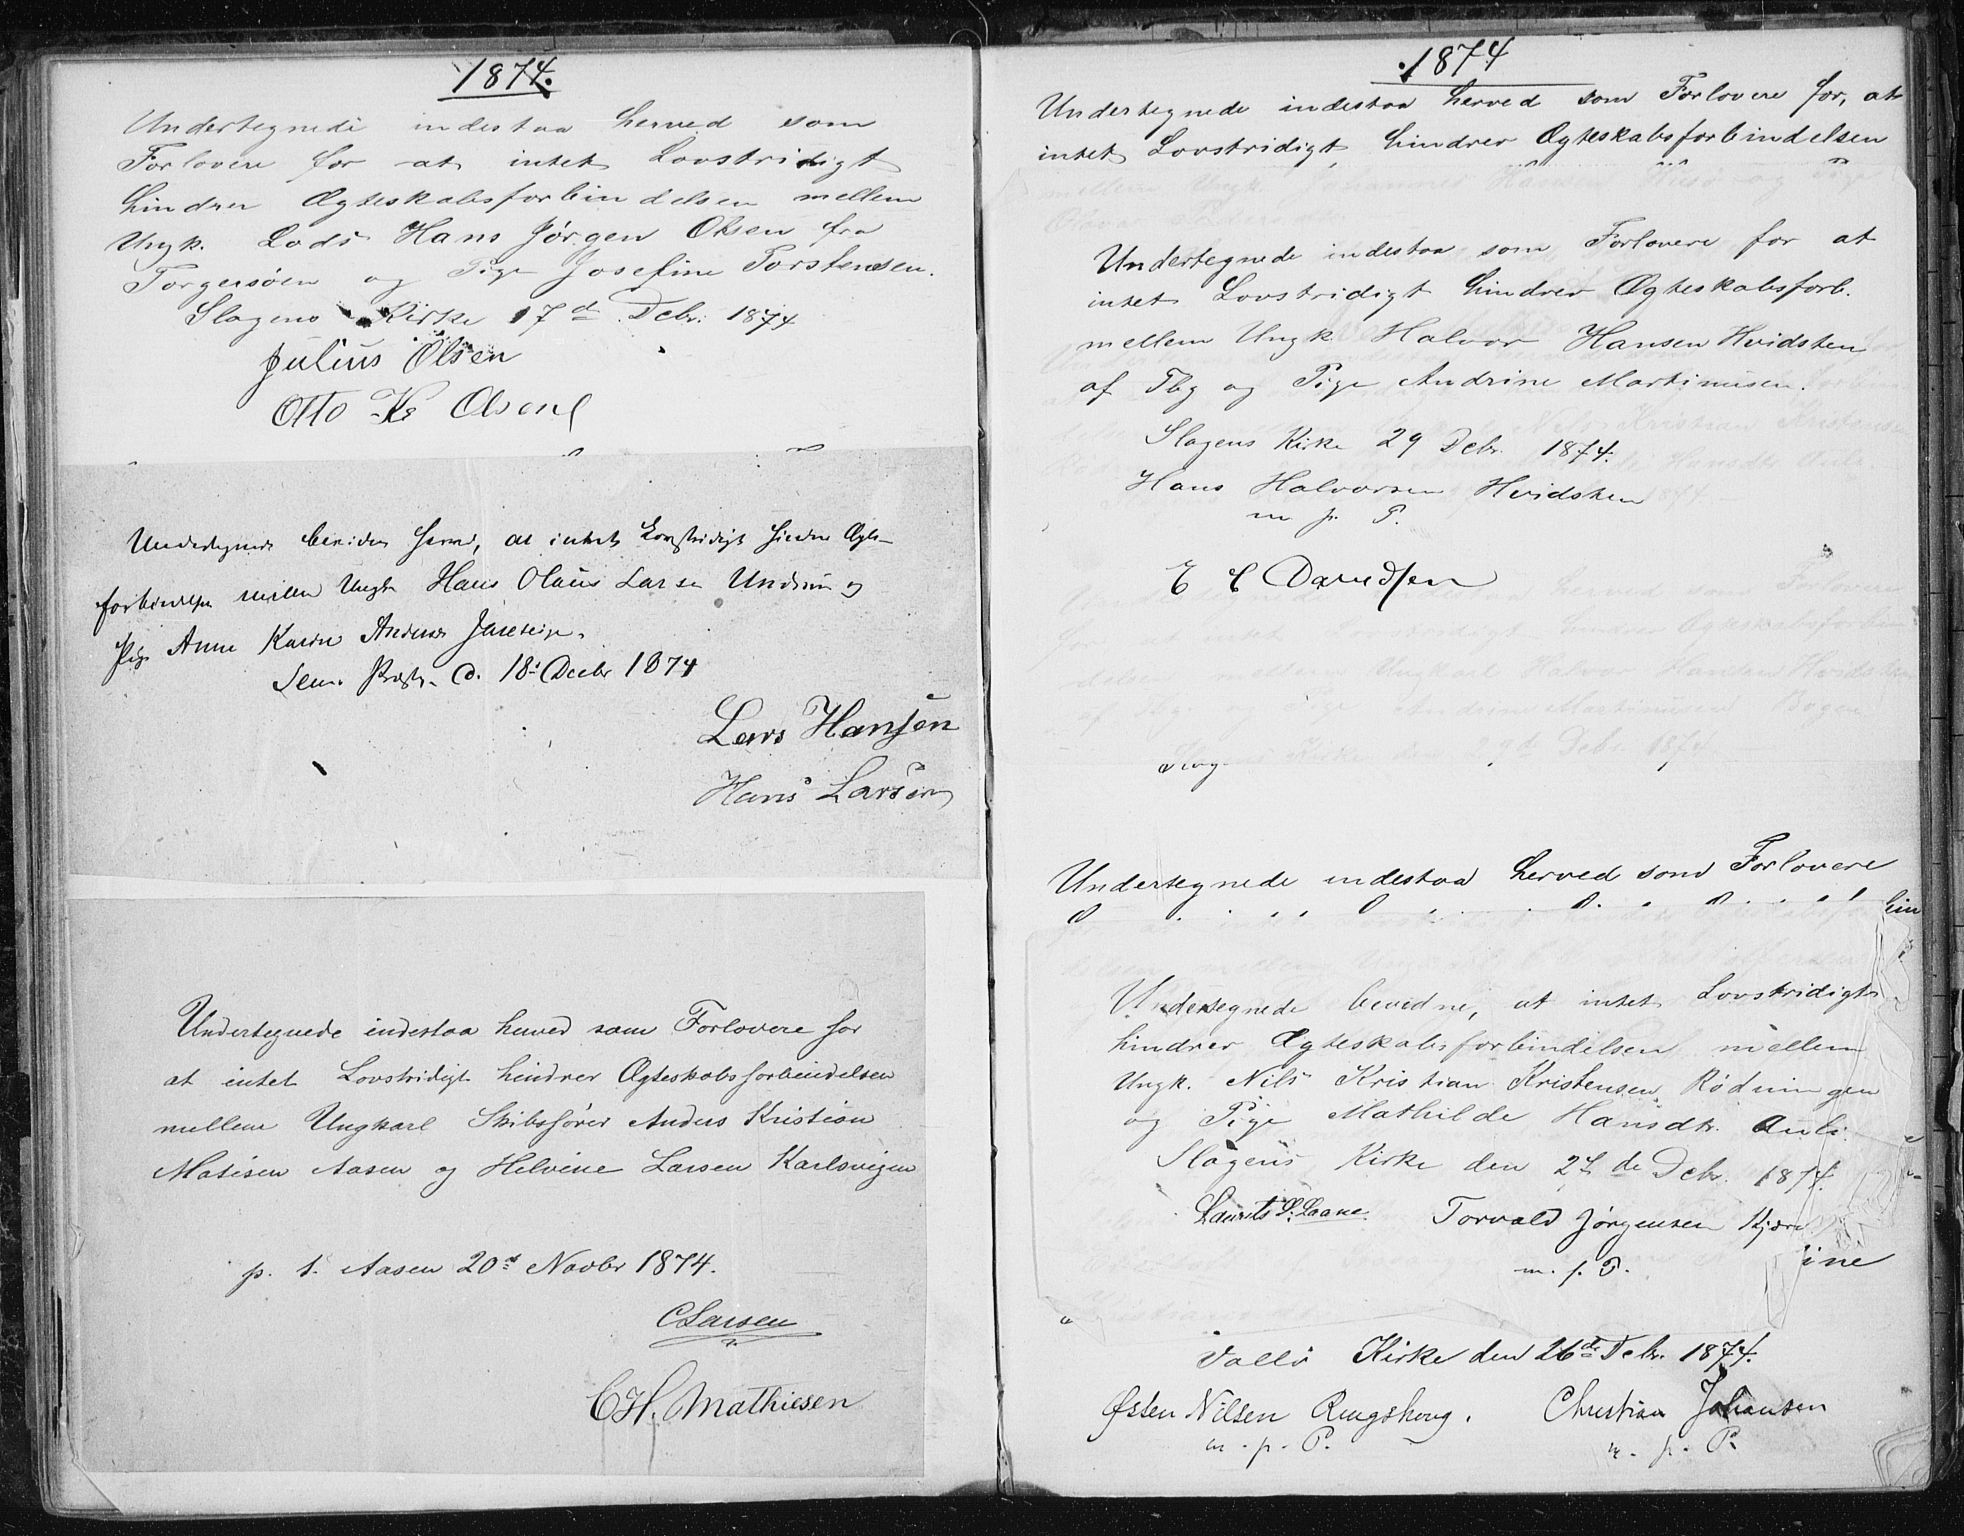 1874.
Undertegnede indestaa herved som
Forlovere for at intet Lovstridigt
hindrer Ægteskabsforbindelsen mellem
Ungk. Lods Hans Jørgen Olsen fra
Torgersøen og Pige Josefine Torstensen.
Slagens Kirke 17de Debr. 1874
Julius Olsen
Otto Kr Olsen
Undertegnede bevidne herved, at intet Lovstridigt hindrer Ægte-
forbindelse mellem Ungk Hans Olaus Larsen Undrum og
Pige Anne Karine Anderse
Sem Præstg. d. 18 Decbr 1874
Lars Hansen
Hans Larsen
Undertegnede indestaa herved som Forlovere for
at intet Lovstridigt hindrer Ægteskabsforbindelsen
mellem Ungkarl Skibsfører Anders Kristian
Matisen Aasen og Helvine Larsen Karlsvigen
p. t. Aasen 20de Novbr 1874.
C Larsen
C H. Mathiesen
1874
Undertegnede indestaa herved som Forlovere for, at
intet Lovstridigt hindrer Ægteskabsforbindelsen
mellem Ungk. Johannes Hansen Husø og Pige
Undertegnede indestaa som Forlovere for at
intet Lovstridigt hindrer Ægteskabsforb.
mellem Ungk Halvor Hansen Hvidsten
af Tbg og Pige Andrine Martinusen.
Slagens Kirke 29 Debr. 1874.
Hans Halvorsen Hvidsten
m p. P.
E C Davidsen
herved som Forlovere
for intet Lovstridigt hindrer Ægteskabsforbin
delsen mellem Ungkarl Halvor Hansen Hvidsten
af Tbg og Pige Andrine Martinusen Bogen
Slagens Kirke den 29de Debr 1874
Undertegnede indestaa herved som Forlovere
Undertegnede bevidne, at intet Lovstridigt
hindrer Ægteskabsforbindelsen mellem
Ungk. Nils Kristian Kristensen Rødningen
og Pige Mathilde Hansdtr. Auli
Slagens Kirke den 27de Debr. 1874.
Laurits L. Laane. Torvald Jørgensen Kjær
m. p. P.
ine
Vallø Kirke den 26de Debr. 1874.
Østen Nilsen Ringshoug. Christian Johansen
m. p. P. m. p. P.